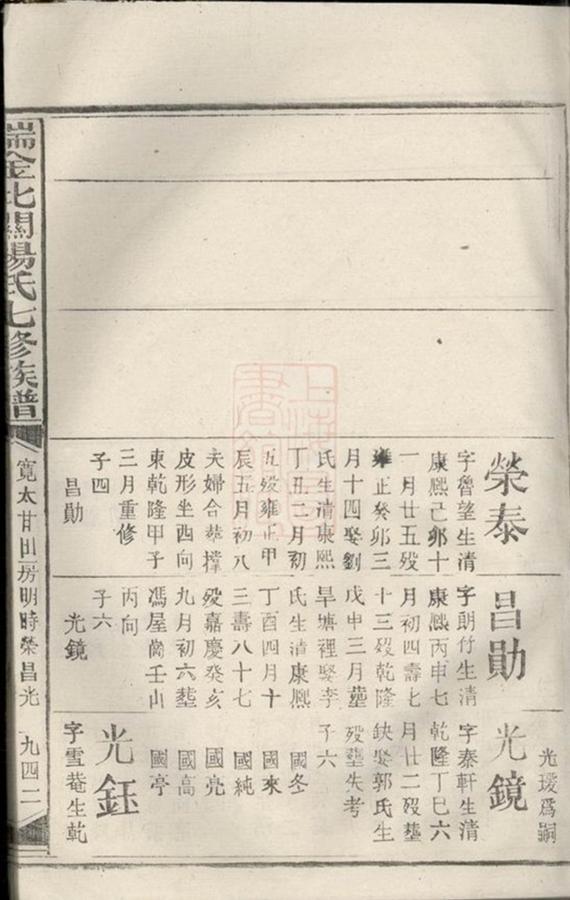 榮泰
字魯望生清
康熙己卯十
一月廿五歿
雍正癸卯三
月十四娶劉
氏生清康熙
丁丑二月初
五歿雍正甲
辰五月初八
夫婦合葬撑
皮形坐西向
東乾隆甲子
三月重修
子四
昌勛
昌勛
字朗竹生清
康熙丙申七
月初四壽七
十三歿乾隆
戊申三月塟
旱塘裡娶李
氏生清康熙
丁酉四月十
三壽八十七
歿嘉慶癸亥
九月初六塟
馮屋崗壬山
丙向
子六
光鏡
光璦爲嗣
光鏡
字泰軒生清
乾隆丁巳六
月廿二歿塟
缺娶郭氏生
歿塟失考
子六
國冬
國來
國純
國亮
國高
國亭
光鈺
字雪菴生乾
瑞金北關楊氏七修族譜
寬太甘田房明時榮昌光
九四二